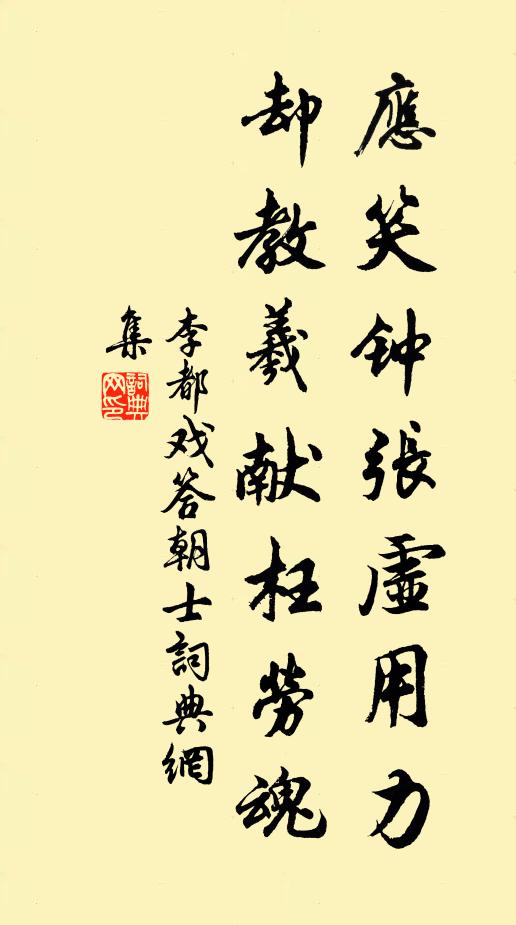 應笑钟張虛用力
却教羲献枉勞魂
李都戏答朝士詞典網
集
詞典
网印